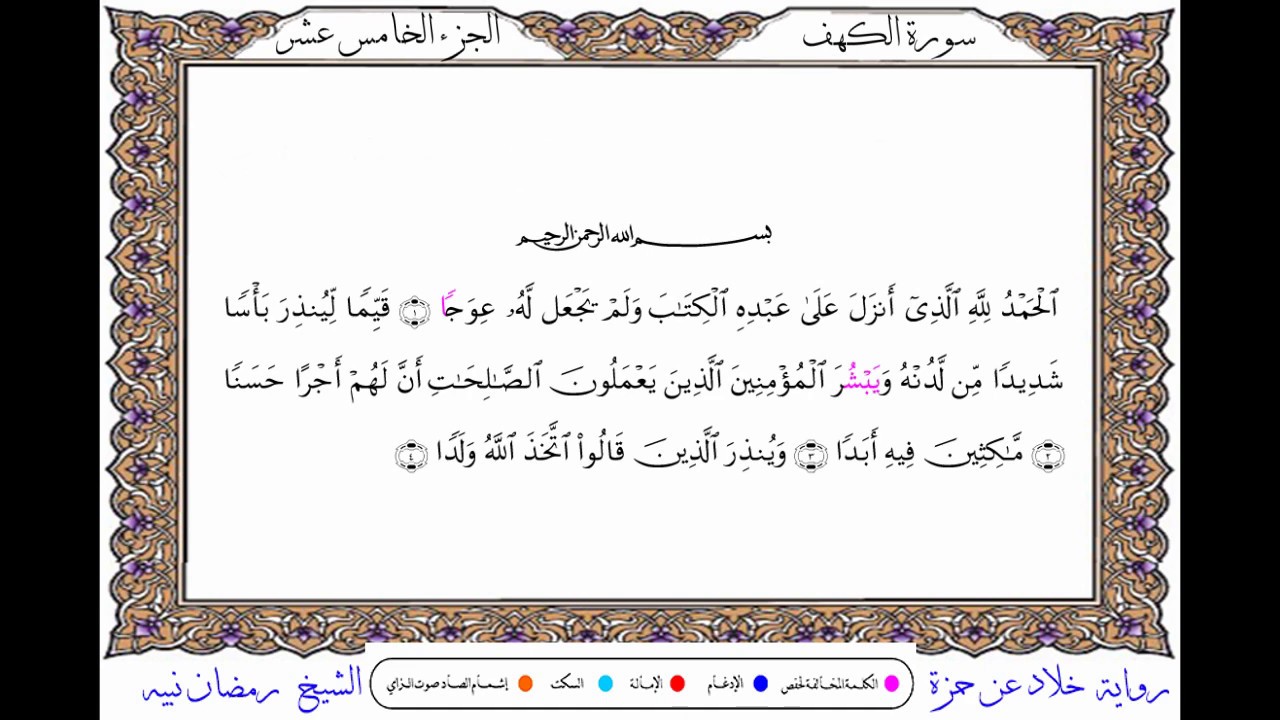 سورة الكهف
الجزء الخامس عشر
بسم الله الرحمن الرحيم
ٱلْحَمْدُ لِلَّهِ ٱلَّذِىٓ أَنزَلَ عَلَىٰ عَبْدِهِ ٱلْكِتَٰبَ وَلَمْ يَجْعَل لَّهُۥ عِوَجًا ١ قَيِّمًا لِّيُنذِرَ بَأْسًا
شَدِيدًا مِّن لَّدُنْهُ وَيَبْشُرَ ٱلْمُؤْمِنِينَ ٱلَّذِينَ يَعْمَلُونَ ٱلصَّٰلِحَٰتِ أَنَّ لَهُمْ أَجْرًا حَسَنًا
٢ مَّٰكِثِينَ فِيهِ أَبَدًا ٣ وَيُنذِرَ ٱلَّذِينَ قَالُوا۟ ٱتَّخَذَ ٱللَّهُ وَلَدًا ٤
رواية خلاد عن حمزة
الكلمة المخالفة لحفص الإدغام الإمالة السكت إشمام الصاد صوت الزاي
الشيخ رمضان نبيه